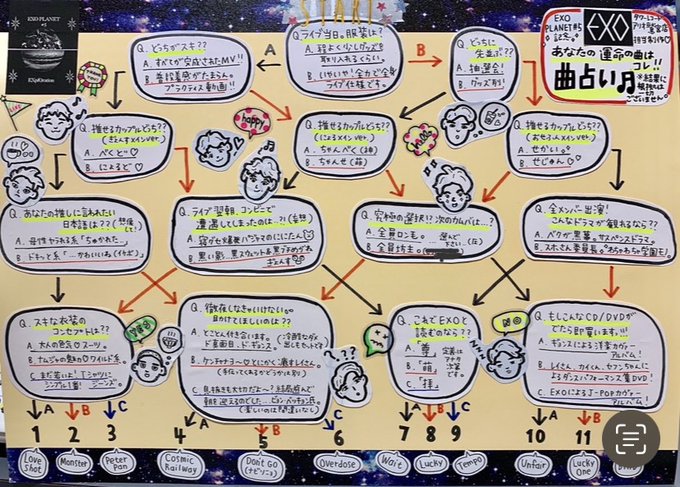 START
EXO PLANET
EXplOration
EXO
PLANET#5
記念。
EXO
タワーレコード
あなたの運命の曲は
コレ!!
曲占い♬
※結果に
一切
ございません。
Q. ライブ当日。服装は?
A. 程よく少しグッズを
取り入れるくらい。
B. いやいや!全力で全身
ライブ仕様です。
A
B
Q. どっちがスキ??
A. すべてが完成されたMV!!
B. 普段着感がたまらん。
プラクティス動画!!
Q. どっちに
先並ぶ??
A. 抽選会!
B. グッズ列!
Q. 推せるカップルどっち??
A. べくど♡
B. にょるど♡
happy
Q. 推せるカップルどっち??
(にょるメインver.)
A. ちゃんべく
B. ちゃんせ
hello
Q. 推せるカップルどっち??
(おせふんメインver.)
A. せかい。
B. せじゅん♡
Q. あなたの推しに言われたい
日本語は??
A. 母性ヤラれる系「ちゅかれた…」
B. ドキッと系「…かわいいね(イケボ)」
Q. ライブ翌朝、コンビニで
遭遇してしまったのは…?!(妄想)
B. 黒い影…黒スウェット&黒ブチめがね
ぎょんす
Q. 究極の選択!?次のカムバは…?
A. 全員ロン毛。
B. 全員坊主。
…選んで
下さい。
Q. 全メンバー出演!
こんなドラマが観れるなら??
A. ベクが黒幕。サスペンスドラマ。
B. スホさん委員長。わちゃわちゃ学園モノ。
Q. スキな衣装の
コンセプトは??
A. 大人の色気♡スーツ。
B. ナムジャの魅力♡ワイルド系。
C. まだ若いよ!Tシャツに
シンプル1番!ジーンズ。
Q. 徹夜しなきゃいけない。
助けてほしいのは??
A. とことん付き合います。
ド真面目、ド・ギョンス。
B. ケンチャナヨ〜♡とにかく励ましイさん。
C. 息抜きも大切だよ〜!結局遊んで
朝迎えるのでした…ビョン・ベッキョン氏。
(楽しいのは間違いなし)
Q. これでEXOと
読むのなら??
A. 「尊」
B. 「萌」
C. 「拝」
定義は
アナタ
次第
です。
NO
Q. もしこんなCD/DVDが
でたら即買います!!!
A. ギョンスによる洋楽カヴァー
アルバム!
B. レイさん、カイくん、セフンちゃんに
よるダンスパフォーマンス集DVD!
C. EXOによるJ-POPカヴァー
アルバム!
A B C
A B C
A B C
A B
1 2 3 4 5 6 7 8 9 10 11
Love
Shot
Monster
Peter
Pan
Cosmic
Railway
Don't Go
(ナビソニョ)
Overdose
Wait
Lucky
Tempo
Unfair
Lucky
One